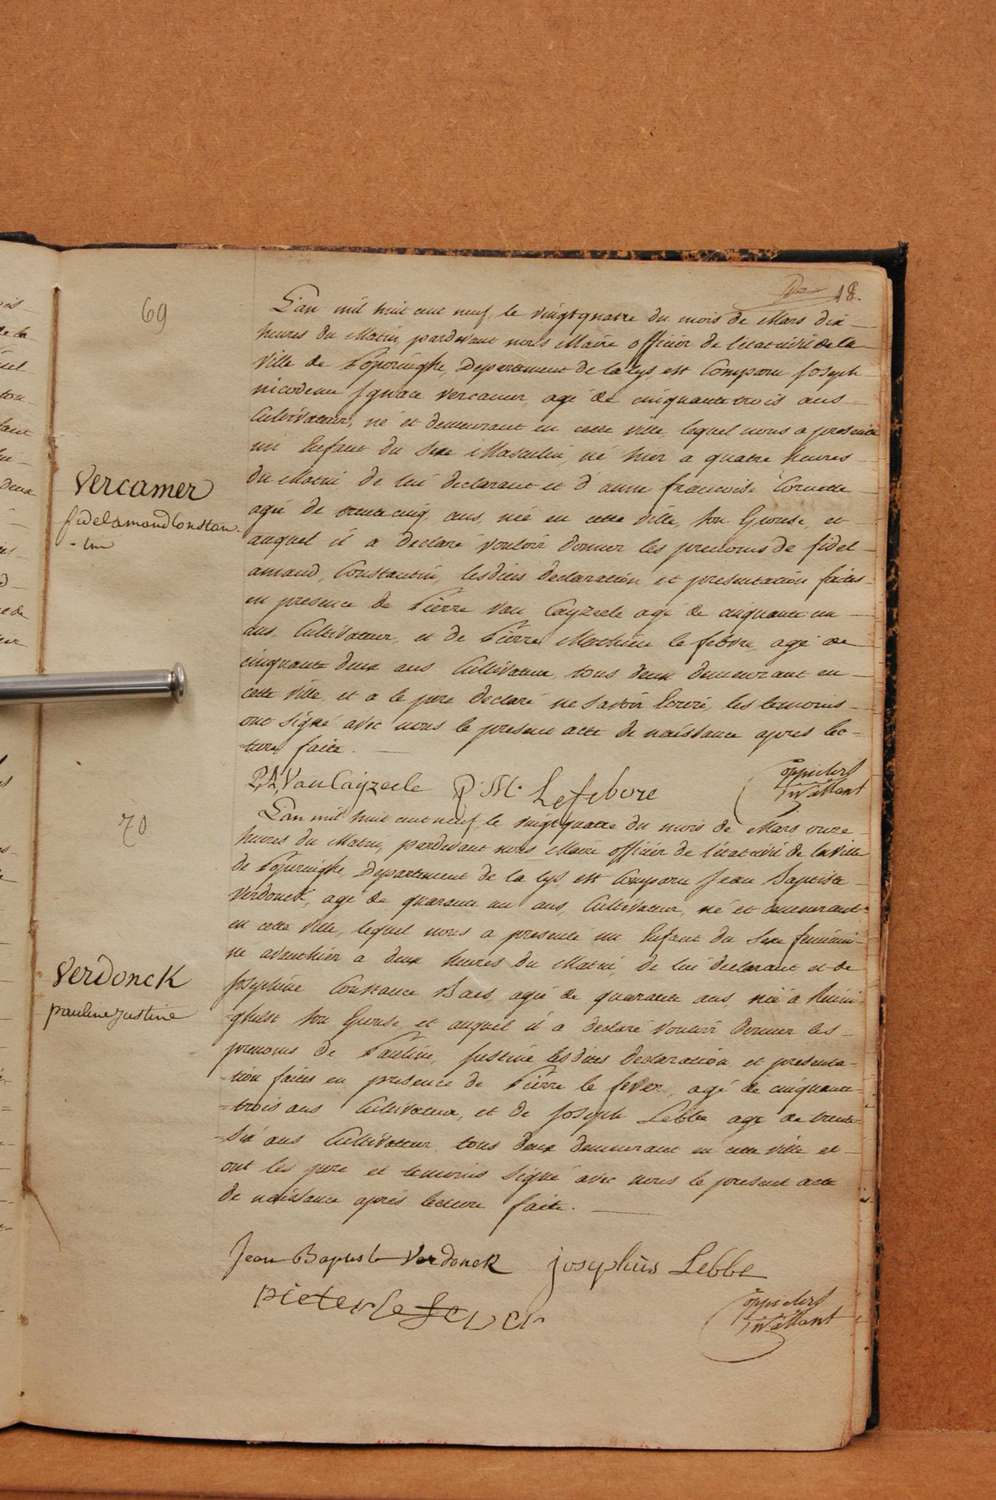 18.
69
L'an mil huit cent neuf, le vingtquatre du mois de Mars dix
heures du Matin, pardevant nous Maire officier de l'état civil de la
Ville de Poperinghe, Departement de la Lys est Comparu Joseph
nicodeme Ignace Vercamer, agé de cinquante trois ans
Cultivateur, né et demeurant en cette ville, lequel nous a presenté
un Enfant du Sexe Masculin, né hier a quatre heures
du Matin de lui declarant et d'anne francoise Cornette
agée de trente cinq ans, née en cette ville, Son Epouse, et
auquel il a declaré vouloir donner les prenoms de fidel
amand, Constantin, lesdites declaration et presentation faites
en presence de Pierre Van Cayzeele agé de cinquante un
ans Cultivateur, et de Pierre Mathieu le febvre, agé de
cinquante deux ans Cultivateur, tous deux demeurant en
cette ville, et a le pere declaré ne savoir Ecrire, les temoins
ont signé avec nous le present acte de naissance apres lec-
ture faite.
Vercamer
fidel amand Constan-
-tin
P.A. Van Cayzeele P. M. Lefebvre
70
L'an mil huit cent neuf, le vingtquatre du mois de Mars onze
heures du Matin, pardevant nous Maire officier de l'état civil de la Ville
de Poperinghe, Departement de la Lys est Comparu Jean Baptiste
Verdonck, agé de quarante un ans, Cultivateur, né et demeurant
en cette ville, lequel nous a presenté un Enfant du Sexe feminin
né avanthier a deux heures du Matin, de lui declarant et de
Josephine Constance Baes, agée de quarante ans née a Reinin-
-ghelst Son Epouse, et auquel il a declaré vouloir donner les
prenoms de Pauline, Justine lesdites declaration et presenta-
-tion faites en presence de Pierre le fever, agé de cinquante
-trois ans Cultivateur, et de Joseph Lebbe agé de trente
Six ans Cultivateur, tous deux demeurant en cette ville et
ont les pere et temoins Signé avec nous le present acte
de naissance après lecture faite.
Verdonck
pauline justine
Jean Baptiste Verdonck josephus Lebbe
pieter le fever